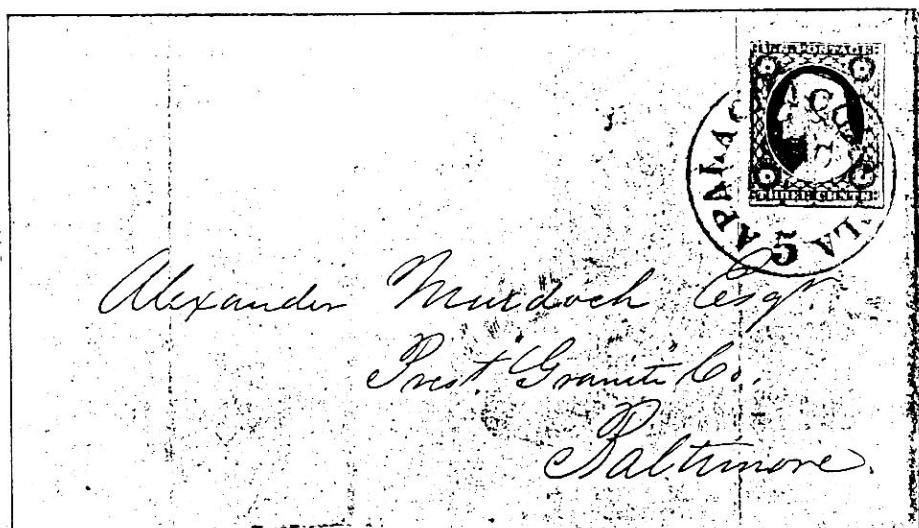 U.S. POSTAGE
THREE CENTS
5
Alexander Murdoch Esqr.
Prest. "Granite" Co.
Baltimore.